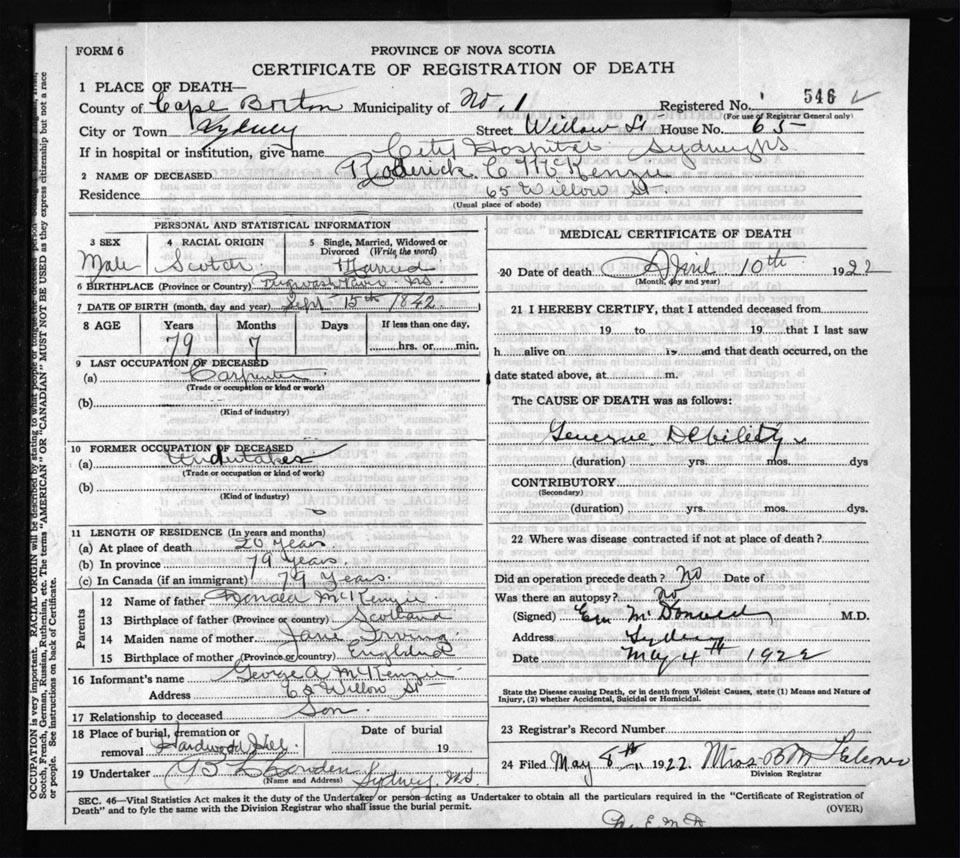 FORM 6
PROVINCE OF NOVA SCOTIA
CERTIFICATE OF REGISTRATION OF DEATH
1 PLACE OF DEATH—
County of Cape Breton Municipality of No. 1 Registered No. 546
(For use of Registrar General only)
City or Town Sydney Street Willow St House No. 65
If in hospital or institution, give name City Hospital Sydney NS
2 NAME OF DECEASED Roderick C McKenzie
Residence 65 Willow St
(Usual place of abode)
PERSONAL AND STATISTICAL INFORMATION
3 SEX 4 RACIAL ORIGIN 5 Single, Married, Widowed or Divorced (Write the word)
Male Scotch Married
6 BIRTHPLACE (Province or Country) NS
7 DATE OF BIRTH (month, day and year) Sept 15th 1842
8 AGE Years Months Days If less than one day,
79 7 hrs. or min.
9 LAST OCCUPATION OF DECEASED
(a) Carpenter
(Trade or occupation or kind or work)
(b)
(Kind of industry)
10 FORMER OCCUPATION OF DECEASED
(a) Undertaker
(Trade or occupation or kind of work)
(b)
(Kind of industry)
11 LENGTH OF RESIDENCE (In years and months)
(a) At place of death 20 years
(b) In province 79 years.
(c) In Canada (if an immigrant) 79 years.
Parents
12 Name of father Donald McKenzie
13 Birthplace of father (Province or country) Scotland
14 Maiden name of mother Jane Irving
15 Birthplace of mother (Province or country) England
16 Informant's name George A McKenzie
Address 65 Willow St
17 Relationship to deceased Son
18 Place of burial, cremation or removal Hardwood Hill Date of burial 19
19 Undertaker Bowden Sydney NS
(Name and Address)
MEDICAL CERTIFICATE OF DEATH
20 Date of death April 10th 1922
(Month, day and year)
21 I HEREBY CERTIFY, that I attended deceased from
19 to 19 that I last saw
h alive on 19 and that death occurred, on the
date stated above, at m.
The CAUSE OF DEATH was as follows:
General Debility
(duration) yrs. mos. dys
CONTRIBUTORY
(Secondary)
(duration) yrs. mos. dys.
22 Where was disease contracted if not at place of death?
Did an operation precede death? No Date of
Was there an autopsy? No
(Signed) McDonald M.D.
Address Sydney
Date May 4th 1922
State the Disease causing Death, or in death from Violent Causes, state (1) Means and Nature of Injury, (2) whether Accidental, Suicidal or Homicidal.
23 Registrar's Record Number
24 Filed May 8th 1922 Miss B M
Division Registrar
SEC. 46—Vital Statistics Act makes it the duty of the Undertaker or person acting as Undertaker to obtain all the particulars required in the "Certificate of Registration of
Death" and to fyle the same with the Division Registrar who shall issue the burial permit. (OVER)
OCCUPATION is very important. RACIAL ORIGIN will be described by stating to what people or tongue
Scotch, French, German, Russian, Ruthenian, etc. The terms "AMERICAN" OR "CANADIAN" MUST NOT BE USED as they express citizenship but not a race
or people. See instructions on back of Certificate.